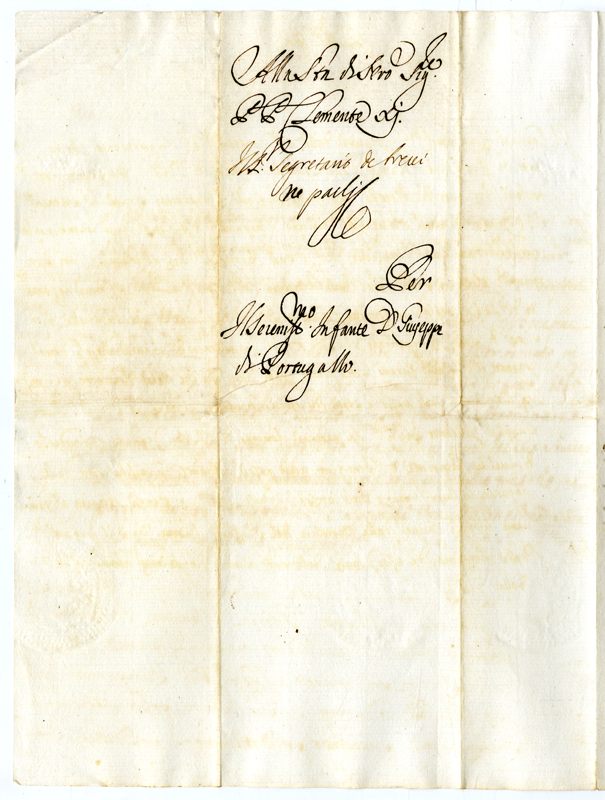 Alla Sta di Nro Sigre
PP Clemente XI.
Al Segretario de brevi
Per
Il Serenissmo Infante D. Giuseppe
di Portugallo.